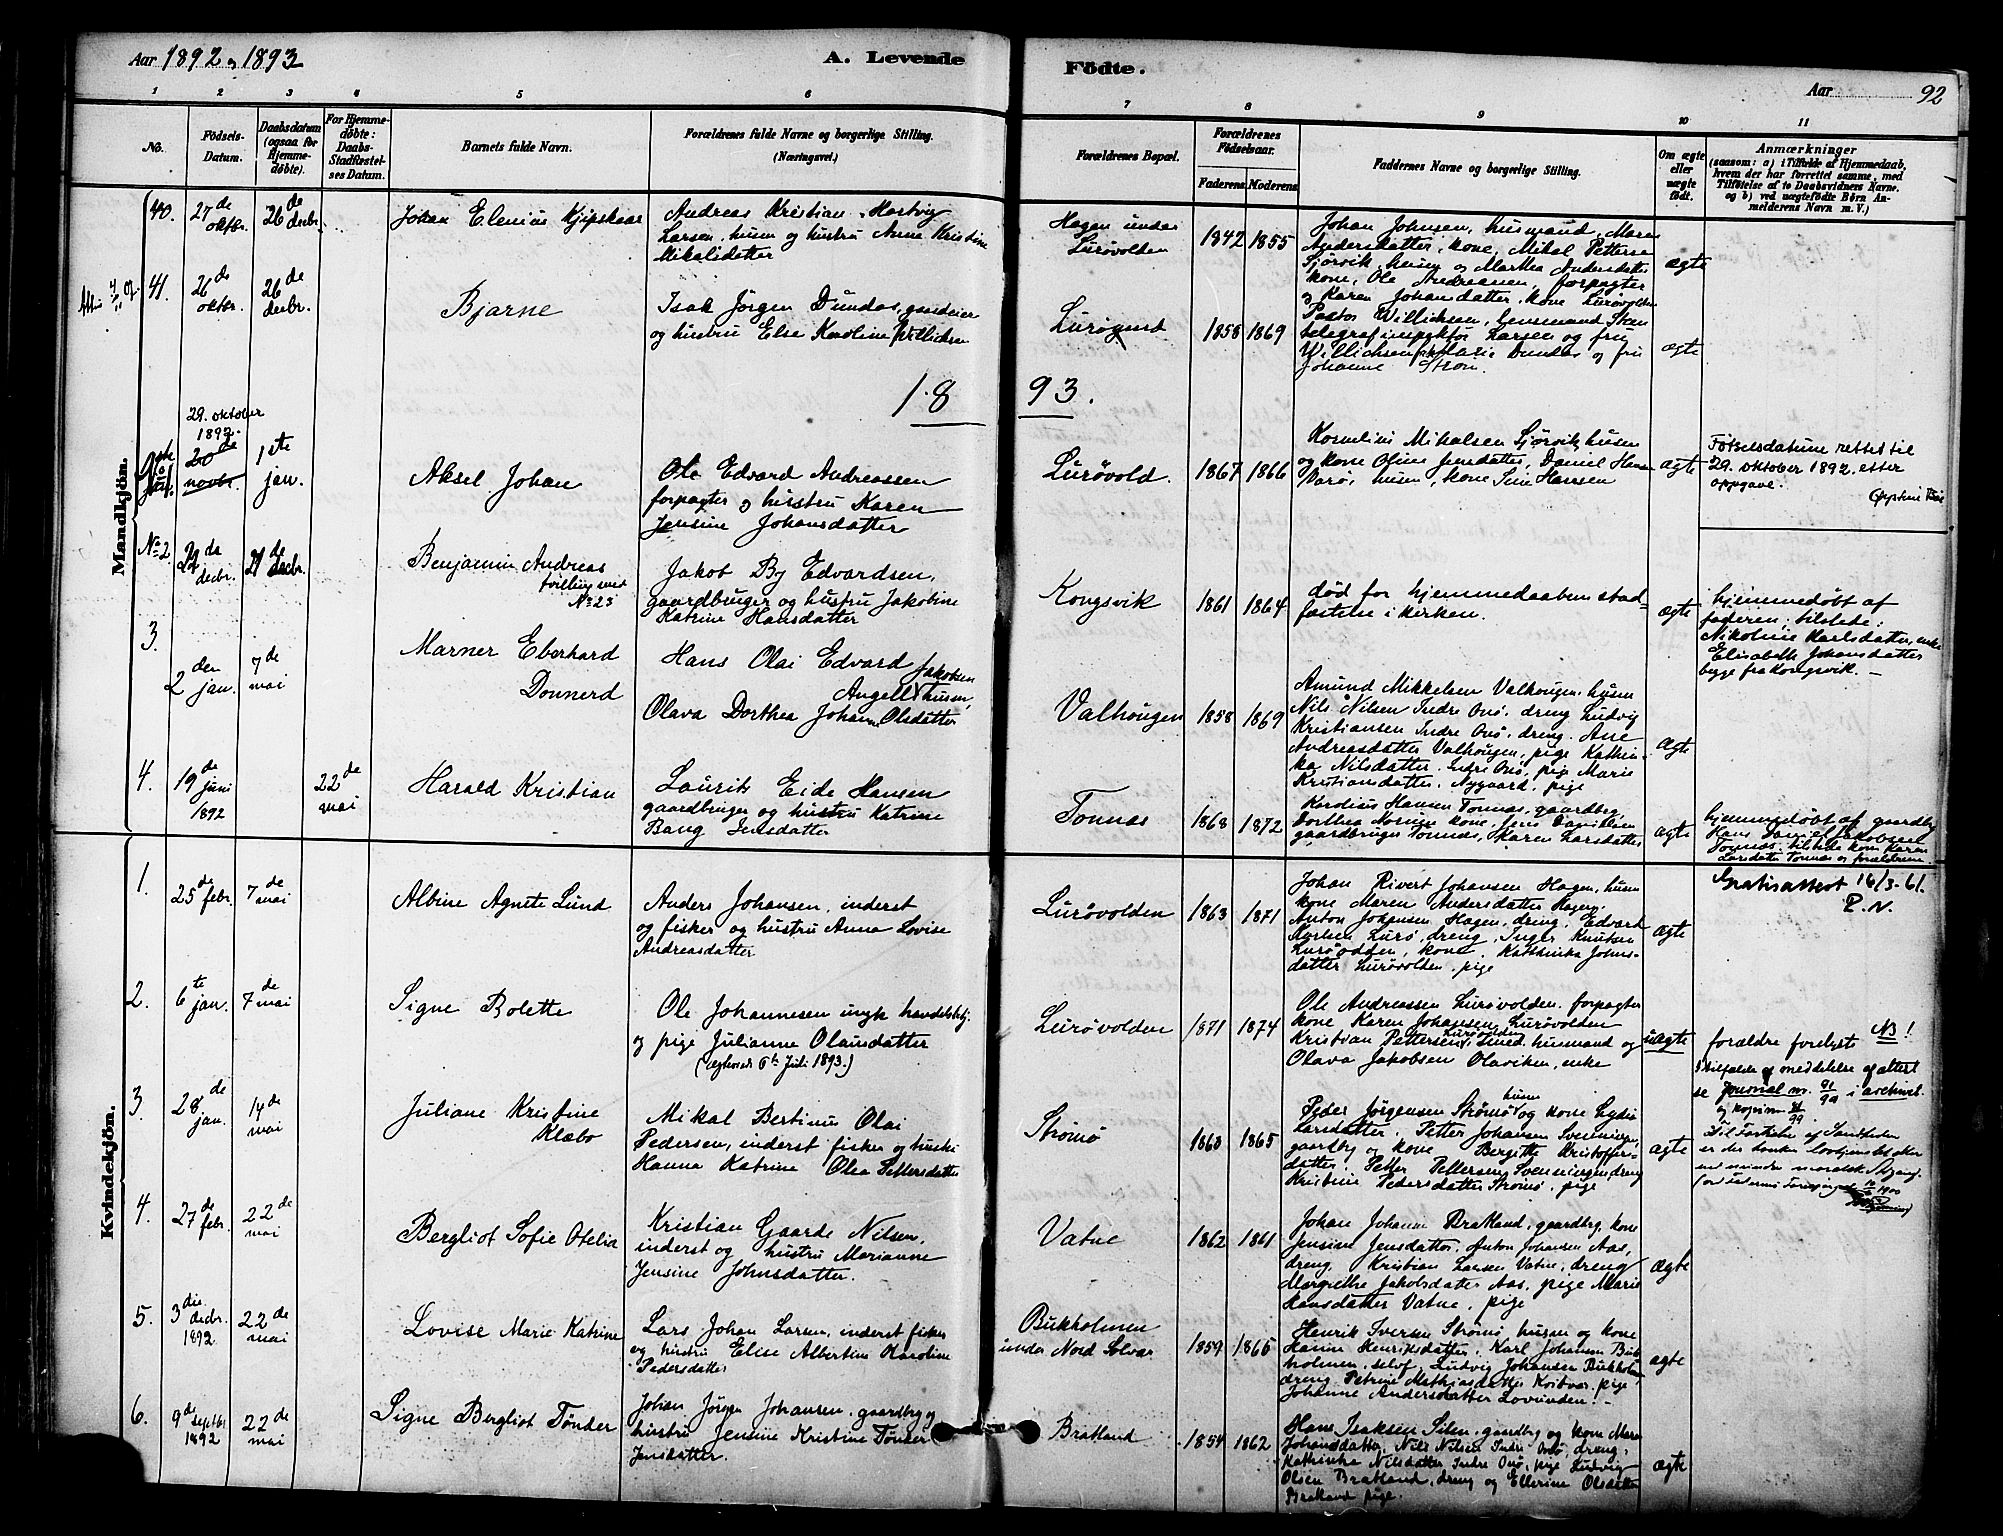 Aar 1892 og 1893
A. Levende
Födte.
Aar
92
1 2 3 4 5 6 7 8 9 10 11
No.
Födsels-
Datum.
Daabsdatum
(ogsaa for
Hjemme-
døbte).
For Hjemme-
døbte:
Daabs-
Stadfæstel-
ses Datum.
Barnets fulde Navn.
Forældrenes fulde Navne og borgerlige Stilling.
(Næringsvei.)
Forældrenes Bopæl.
Forældrenes
Födselsaar.
Faderens
Moderens
Faddernes Navne og borgerlige Stilling.
Om ægte
eller
uægte
födt.
Anmærkninger
(saasom: a) i Tilfælde af Hjemmedaab,
hvem der har forrettet samme, med
Tilföielse af to Daabsvidners Navne.
og b) ved uægtefödte Börn An-
melderens Navn m. V.)
Mandkjön.
40.
27de
oktbr.
26de
decbr.
Johan Elenius Kjipskaar
Andreas Kristian Hartvig
Larsen, husm og hustru Anne Kristine
Mikalsdatter
Hagen under
Lurøvolden
1842
1855
Johan Johnsen, husmand, Maren
Andersdatter, kone, Mikal Petterse
Sjørvik, husm og Marthea Andersdatter
kone, Ole Andreassen, forpagter
og Karen Johansdatter, kone Lurøvolden
ægte
41.
26de
oktbr.
26de
decbr.
Bjarne
Isak Jørgen Dundas, gaardeier
og hustru Else Karoline Willichsen
Lurøgaard
1858
1869
Pastor Willichsen, Lensmand Steen
telegrafinspektør Larsen og fru
Willichsen, frk Marie Dundas og fru
Johanne Strøm.
ægte
18 93.
29. oktober
1892.
20de
novbr.
1ste
jan.
Aksel Johan
Ole Edvard Andreassen
forpagter og hustru Karen
Jensine Johansdatter
Lurøvold.
1867
1866
Kornelius Mikalsen Sjørvik husm
og kone Oline Jensdatter, Daniel Hansen
Varø, husm, kone Sine Hansen
ægte
Fødselsdatum rettet til
29. oktober 1892, etter
oppgave.
No 2
22de
decbr.
27de
decbr.
Benjamin Andreas
tvilling med
No 25
Jakob By Edvardsen,
gaardbruger og hustru Jakobine
Katrine Hansdatter
Kongsvik
1861
1864
død før hjemmedaabens stad-
fæstelse i kirken.
ægte
hjemmedøbt af
faderen; tilstede:
Nikoline Karlsdatter, enke
Elisabeth Johansdatter
begge fra Kongsvik.
3.
2den
jan.
7de
mai
Marner Eberhard
Donnerd
Hans Olai Edvard Jakobsen
Angell, husm,
Olava Dorthea Johanna Olsdatter
Valhougen
1858
1869
Amund Mikkelsen Valhougen, husm
Nils Nilsen Indre Onø, dreng Ludvig
Kristiansen Indre Onø, dreng. Ane
Andreasdatter Valhougen, pige Kathin-
ka Nilsdatter Indre Onø, pige Marie
Kristiansdatter, Nygaard, pige
ægte
4.
19de
juni
1892
22de
mai
Harald Kristian
Laurits Eide Hansen
gaardbruger og hustru Katrine
Bang Jensdatter
Tonnes
1868
1872
Karolius Hansen Tonnes, gaardbrg,
Dorthea kone, Jens Danielsen
gaardbruger Tonnes, Karen Larsdatter
ægte
hjemmedøbt af gaardbr
Hans Daniel Jakobsen
Tonnes, tilstede kone Karen
Larsdatter Tonnes og forældrene
Kvindekjön.
1.
25de
febr.
7de
mai
Albine Agnete Lund
Anders Johansen, inderst
og fisker og hustru Anna Lovise
Andreasdatter
Lurøvolden
1863
1871
Johan Rivert Johansen Hagen, husm
kone Maren Andersdatter Hagen,
Anton Johansen Hagen, dreng, Edvard
Karlsen Lurø, dreng, Inger Knutsen
Lurøvolden, kone, Kathinka Johns-
datter Lurøvolden, pige
ægte
Gratisattest 16/3-61.
P.N.
2.
6te
jan.
7de
mai
Signe Bolette
Ole Johannesen ungk handelsbtj.
og pige Julianne Olausdatter
(Ægteviet 6te Juli 1893.)
Lurøvolden
1871
1874
Ole Andreassen Lurøvolden, forpagter
kone Karen Johansen Lurøvolden
Kristian Pettersen Lurøvolden Smed, husmand og
Olava Jakobsen Olaviken, enke
uægte
NB!
forældre forelyst
I tilfælde af meddelelse af attest
se Journal nr. 91/99 i archivet
3.
28de
jan.
14de
mai
Juliane Kristine
Klæbo
Mikal Bertinus Olai
Pedersen, inderst fisker og hustru
Hanna Katrine Olea Pettersdatter
Strømø
1863
1865
Peder Jørgensen Strømø husm og kone Lydia
Larsdatter, Petter Johansen Svenningen,
gaardbrg og kone Bergitte Kristoffer-
datter, Petter Pettersen Svenningen, dreng
Kristine Pedersdatter Strømø, pige
ægte
4.
27de
febr.
22de
mai
Bergliot Sofie Otelia
Kristian Gaarde Nilsen,
inderst og hustru Marianne
Jensine Johnsdatter.
Vatne
1862
1861
Johan Johansen Bratland, gaardbrg, kone
Jensine Jensdatter, Anton Johansen Aas,
dreng, Kristian Larsen Vatne, dreng
Margrethe Jakobsdatter Aas, pige Marie
Hansdatter Vatne, pige
ægte
5.
3die
decbr.
1892
22de
mai
Lovise Marie Katrine
Lars Johan Larsen, inderst fisker
og hustru Elise Albertine Karoline
Pedersdatter
Bukholmen
under Nord Solvær
1859
1866
Henrik Iversen Strømø, husm og kone
Hanna Henriksdatter, Karl Johansen Buk-
holmen, selvf, Ludvig Johansen Bukholm
dreng Petrine Mathiasdatter Kvitvær, pige
Johanne Andersdatter Lovunden.
ægte
6.
9de
septbr
1892
22de
mai
Signe Bergliot Tønder
Johan Jørgen Johansen, gaardbrg og
hustru Jensine Kristine Tønder
Jensdatter.
Bratland
1854
1862
Hans Isaksen Silen, gaardbrg og kone Mara
Johansdatter, Nils Nilsen Indre Onø, dreng,
Kathinka Nilsdatter Indre Onø, pige Ludvig
Olsen Bratland, dreng og Ellerine Olsdatter
Bratland pige.
ægte